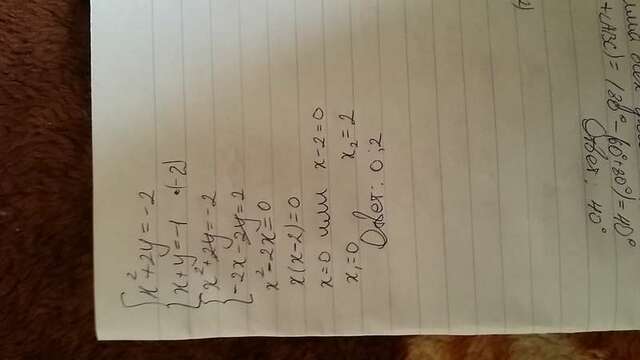 {x²+2y=-2
{x+y=-1 •(-2)
{x²+2y=-2
{-2x-2y=2
x²-2x=0
x(x-2)=0
x=0 или x-2=0
x₁=0 x₂=2
Ответ: 0;2
Ответ: 40°